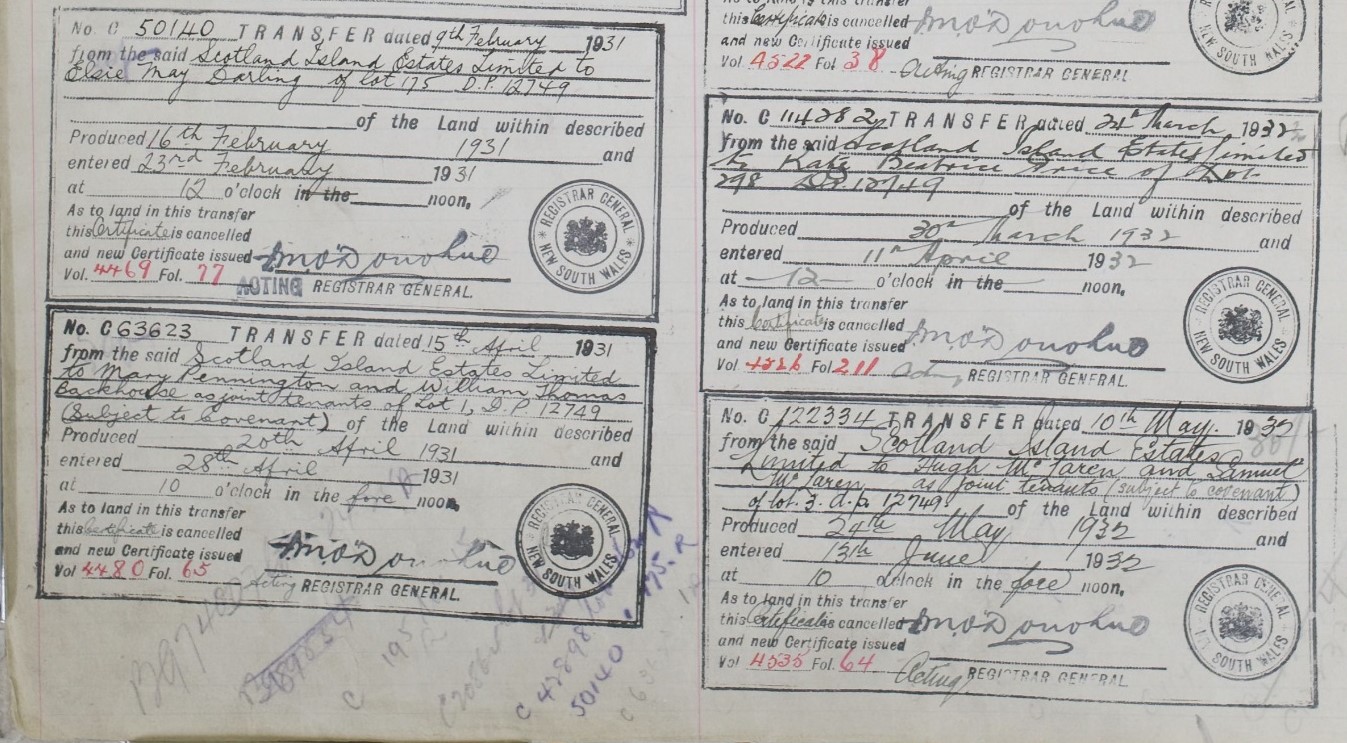 No. C 50140 TRANSFER dated 9th February 1931
from the said Scotland Island Estates Limited to
Elsie May Darling of Lot 175 D.P. 12749
of the Land within described
Produced 16th February 1931 and
entered 23rd February 1931
at 12 o'clock in the noon,
As to land in this transfer
this Certificate is cancelled
and new Certificate issued
Vol. 4469 Fol. 77
ACTING REGISTRAR GENERAL.
REGISTRAR GENERAL
NEW SOUTH WALES
No. C 63623 TRANSFER dated 15th April 1931
from the said Scotland Island Estates Limited
to Mary Pennington and William Thomas
Backhouse as joint tenants of Lot 1, D.P. 12749
(Subject to Covenant) of the Land within described
Produced 20th April 1931 and
entered 28th April 1931
at 10 o'clock in the fore noon,
As to land in this transfer
this Certificate is cancelled
and new Certificate issued
Vol 4480 Fol. 65
Acting REGISTRAR GENERAL.
REGISTRAR GENERAL
NEW SOUTH WALES
175.R
50140
this Certificate is cancelled
and new Certificate issued
Vol 4522 Fol 38 Acting REGISTRAR GENERAL
NEW SOUTH WALES
No. C 114282 TRANSFER dated 24th March 1932
from the said Scotland Island Estates Limited
to Kate Beatrice Price of Lot
298 D.P. 12749
of the Land within described
Produced 30th March 1932 and
entered 11th April 1932
at 12 o'clock in the noon,
As to land in this transfer
this Certificate is cancelled
and new Certificate issued
Vol 4526 Fol 211 Acting REGISTRAR GENERAL.
REGISTRAR GENERAL
NEW SOUTH WALES
No. C 122334 TRANSFER dated 10th May. 1932
from the said Scotland Island Estates
Limited to Hugh McLaren and Samuel
McLaren as joint tenants (subject to covenant)
of lot 3. d.p. 12749 of the Land within described
Produced 24th May 1932 and
entered 13th June 1932
at 10 o'clock in the fore noon,
As to land in this transfer
this Certificate is cancelled
and new Certificate issued
Vol 4535 Fol. 64 Acting REGISTRAR GENERAL
REGISTRAR GENERAL
NEW SOUTH WALES